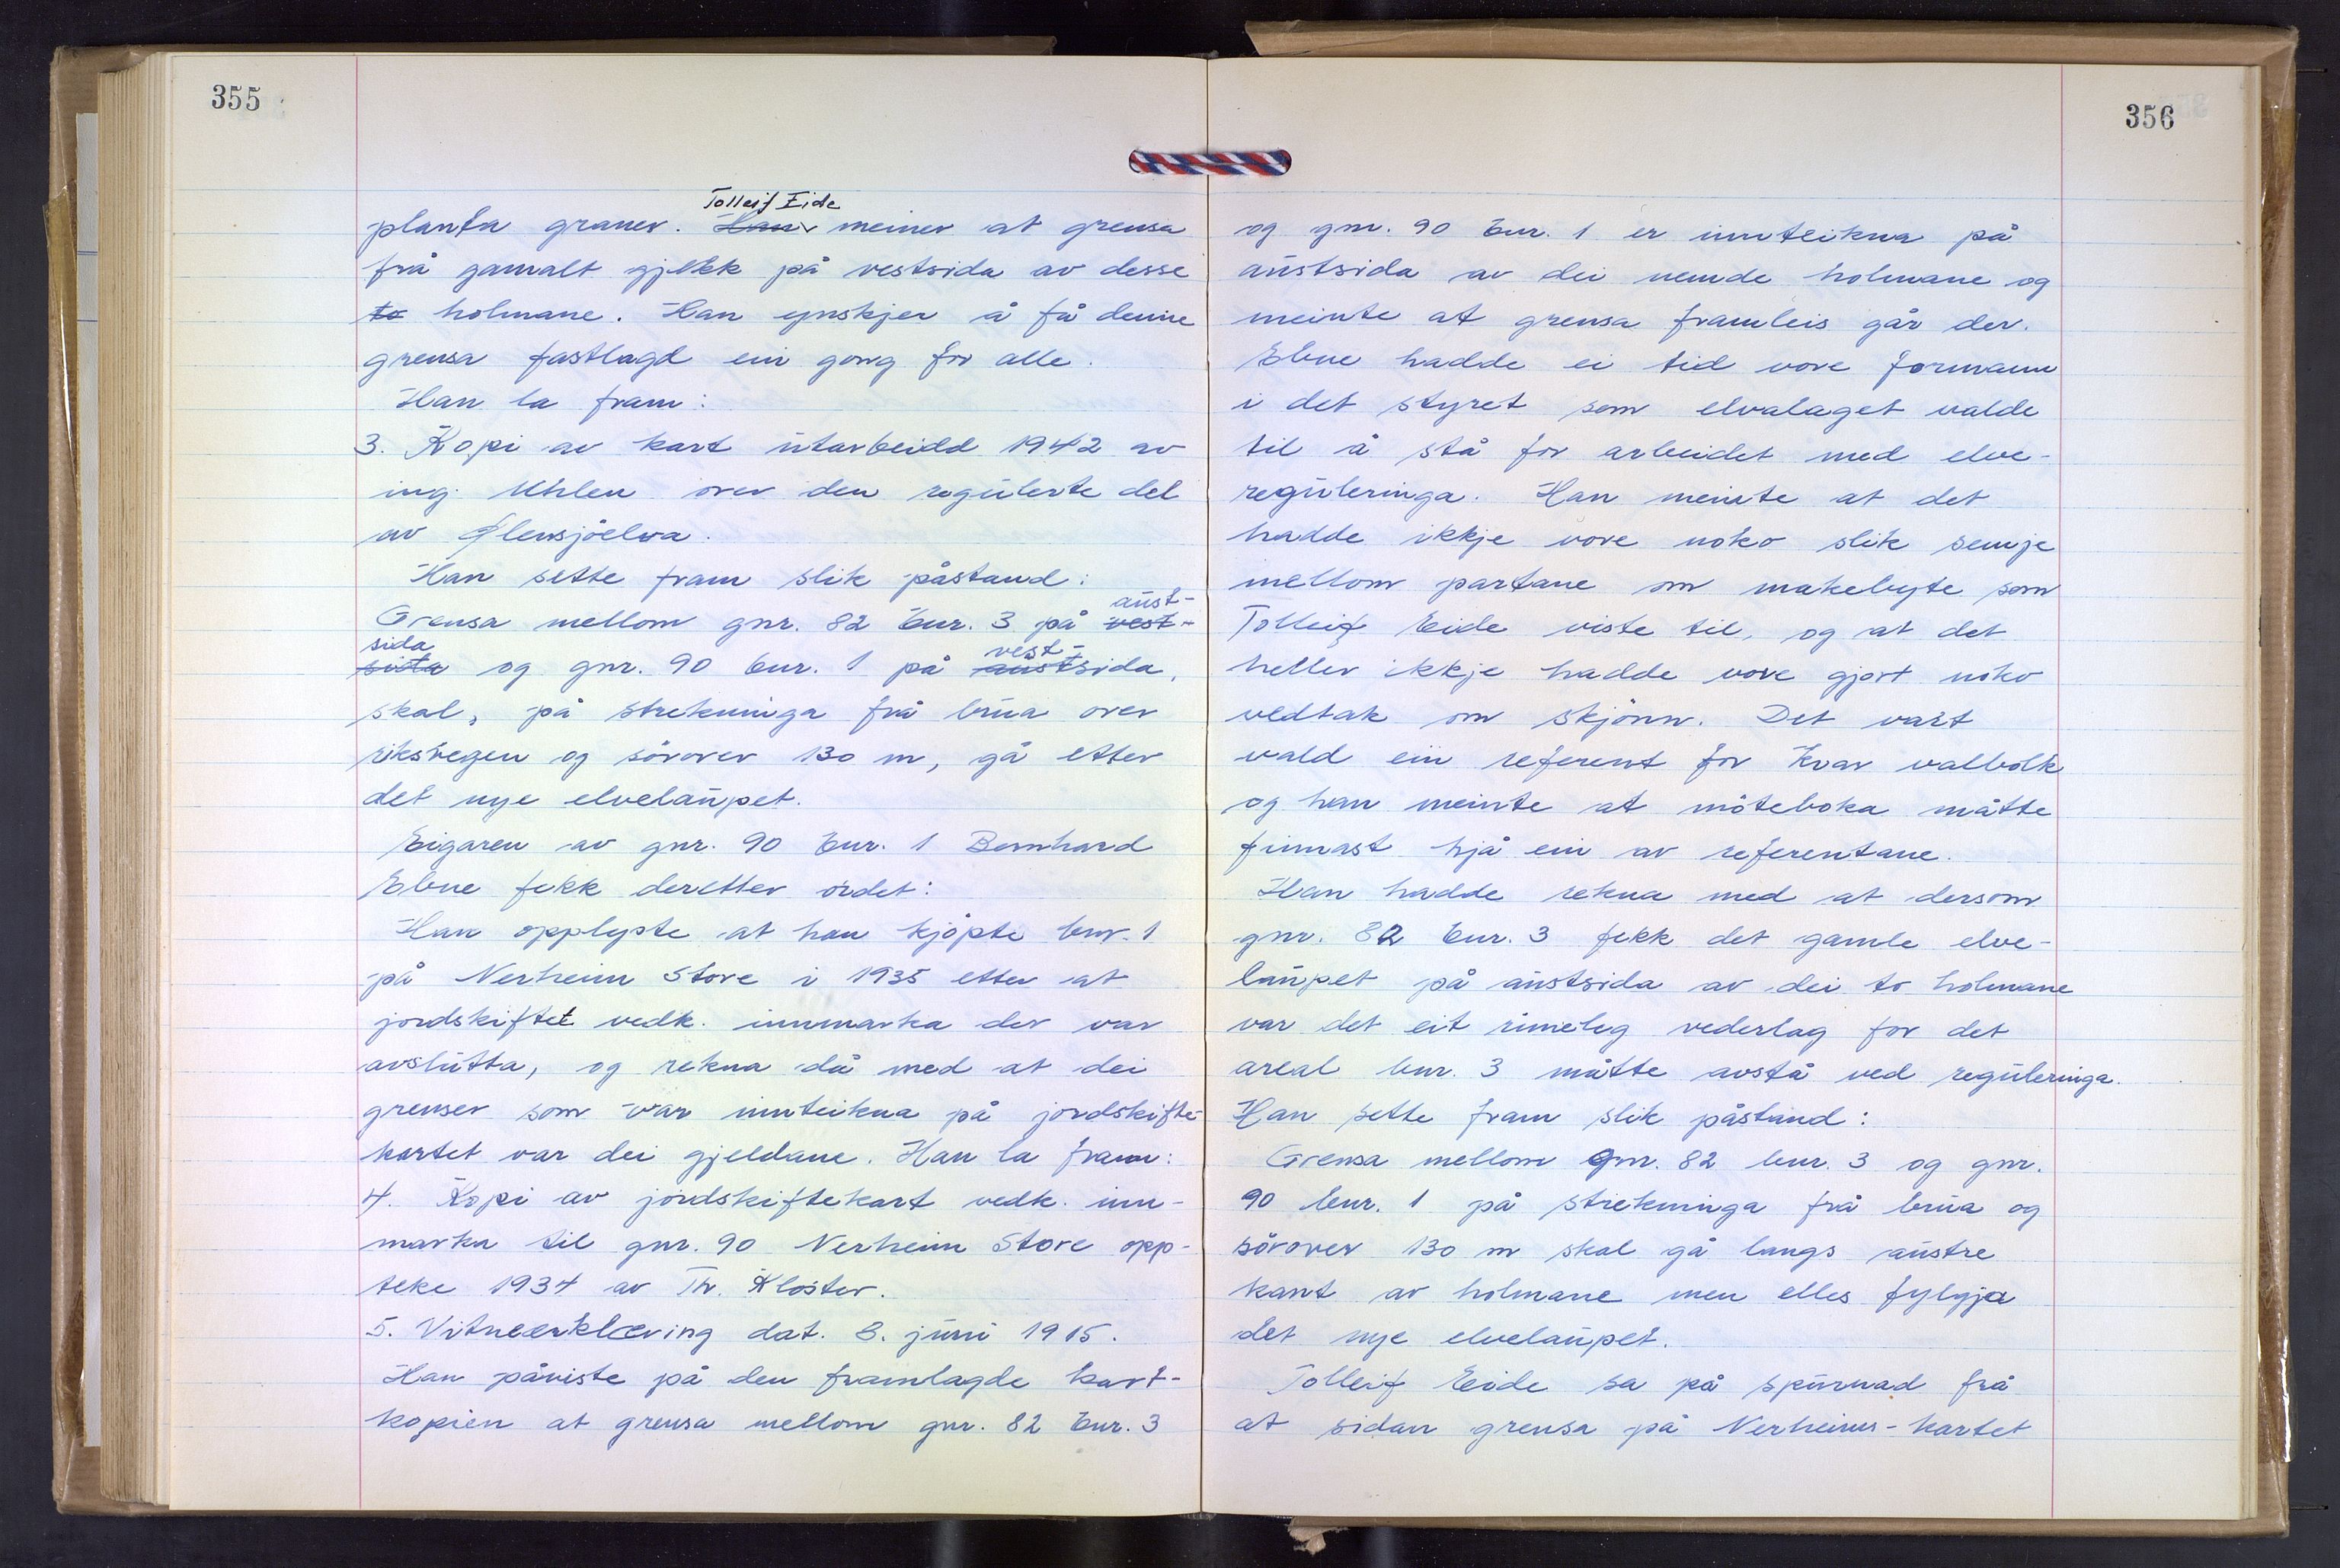 355
planta graner. Tolleif Eide meiner at grensa
frå gamalt gjekk på vestsida av desse
to holmane. Han ynskjer å få denne
grensa fastlagd ein gong for alle.
Han la fram:
3. Kopi av kart utarbeidd 1942 av
ing. Uhlen over den regulerte del
av Ølensjøelva.
Han sette fram slik påstand:
Grensa mellom gnr. 82 bnr. 3 på aust-
sida og gnr. 90 bnr. 1 på vestsida,
skal, på strekninga frå brua over
riksvegen og sörover 130 m, gå etter
det nye elvelaupet.
Eigaren av gnr. 90 bnr. 1 Bernhard
Ebne fekk deretter ordet:
Han opplyste at han kjöpte bnr. 1
på Nerheim Store i 1935 etter at
jordskiftet vedk. innmarka der var
avslutta, og rekna då med at dei
grenser som var innteikna på jordskifte-
kartet var dei gjeldane. Han la fram:
4. Kopi av jordskiftekart vedk. inn-
marka til gnr. 90 Nerheim Store opp-
teke 1934 av Th. Kloster.
5. Vitneerklæring dat. 8. juni 1915.
Han påviste på den framlagde kart-
kopien at grensa mellom gnr. 82 bnr. 3
356
og gnr. 90 bnr. 1 er innteikna på
austsida av dei nemde holmane og
meinte at grensa framleis går der.
Ebne hadde ei tid vore formann
i det styret som elvalaget valde
til å stå for arbeidet med elve-
reguleringa. Han meinte at det
hadde ikkje vore noko slik semje
mellom partane om makebyte som
Tolleif Eide viste til, og at det
heller ikkje hadde vore gjort noko
vedtak om skjönn. Det vart
vald ein referent for kvar valbolk
og han meinte at möteboka måtte
finnast hjå ein av referentane.
Han hadde rekna med at dersom
gnr. 82 bnr. 3 fekk det gamle elve-
laupet på austsida av dei to holmane
var det eit rimeleg vederlag for det
areal bnr. 3 måtte avstå ved reguleringa.
Han sette fram slik påstand:
Grensa mellom gnr. 82 bnr. 3 og gnr.
90 bnr. 1 på strekninga frå brua og
sörover 130 m skal gå langs austre
kant av holmane men elles fylgja
det nye elvelaupet.
Tolleif Eide sa på spurnad frå
at sidan grensa på Nerheims-kartet